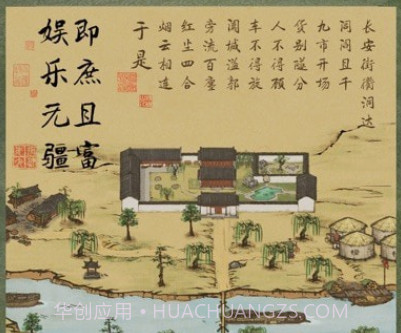 长安街衢洞达
闾阎且千
九市开场
货别隧分
人不得顾
车不得旋
阗城溢郭
旁流百廛
红尘四合
烟云相连
于是
即庶且富
娱乐无疆
华创应用·HUACHUANGZS.COM